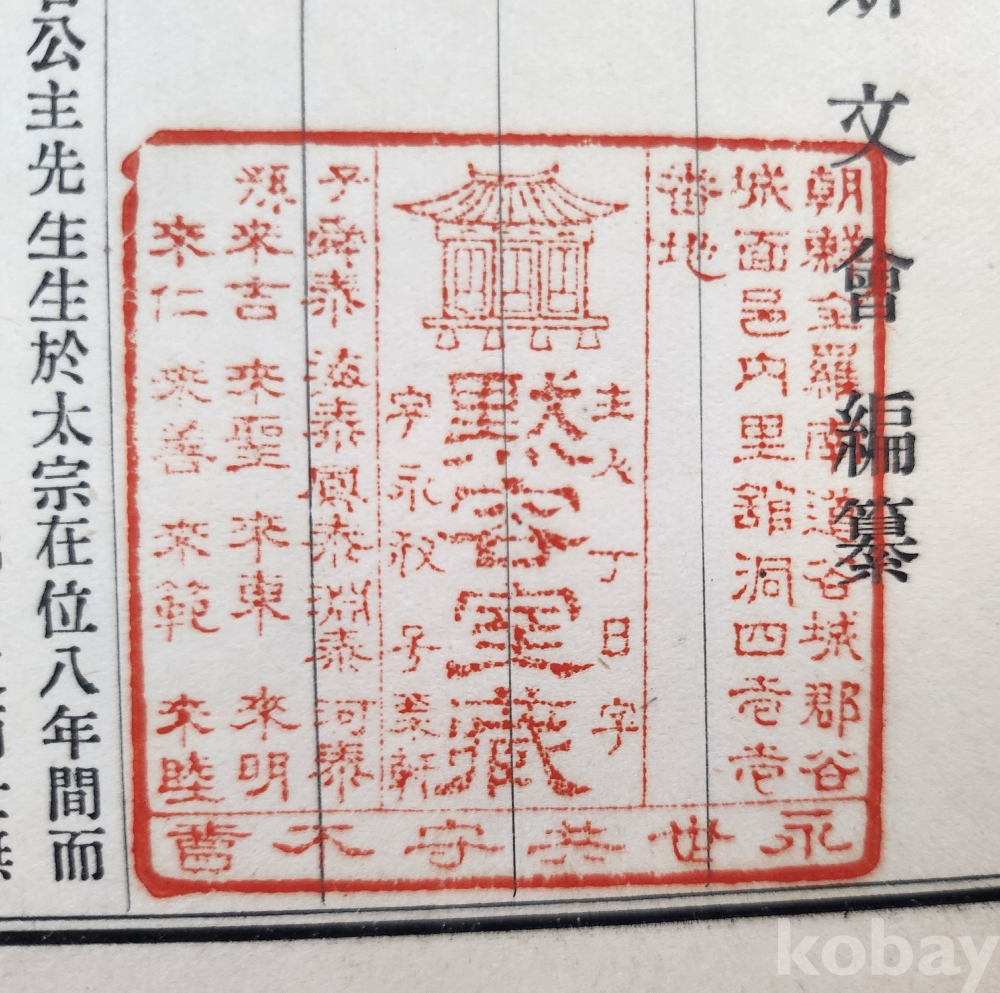 文會編纂
朝鮮全羅南道谷城郡谷
城面邑內里舘洞四壱壱
番地
主人丁日字
默容室藏
字永 子 軒
子舜泰 海泰 鳳泰 淵泰 河泰
孫來吉 來聖 來東 來明
來仁 來善 來範 來陸
永世共守不
公主先生生於太宗在位八年間而
kobay